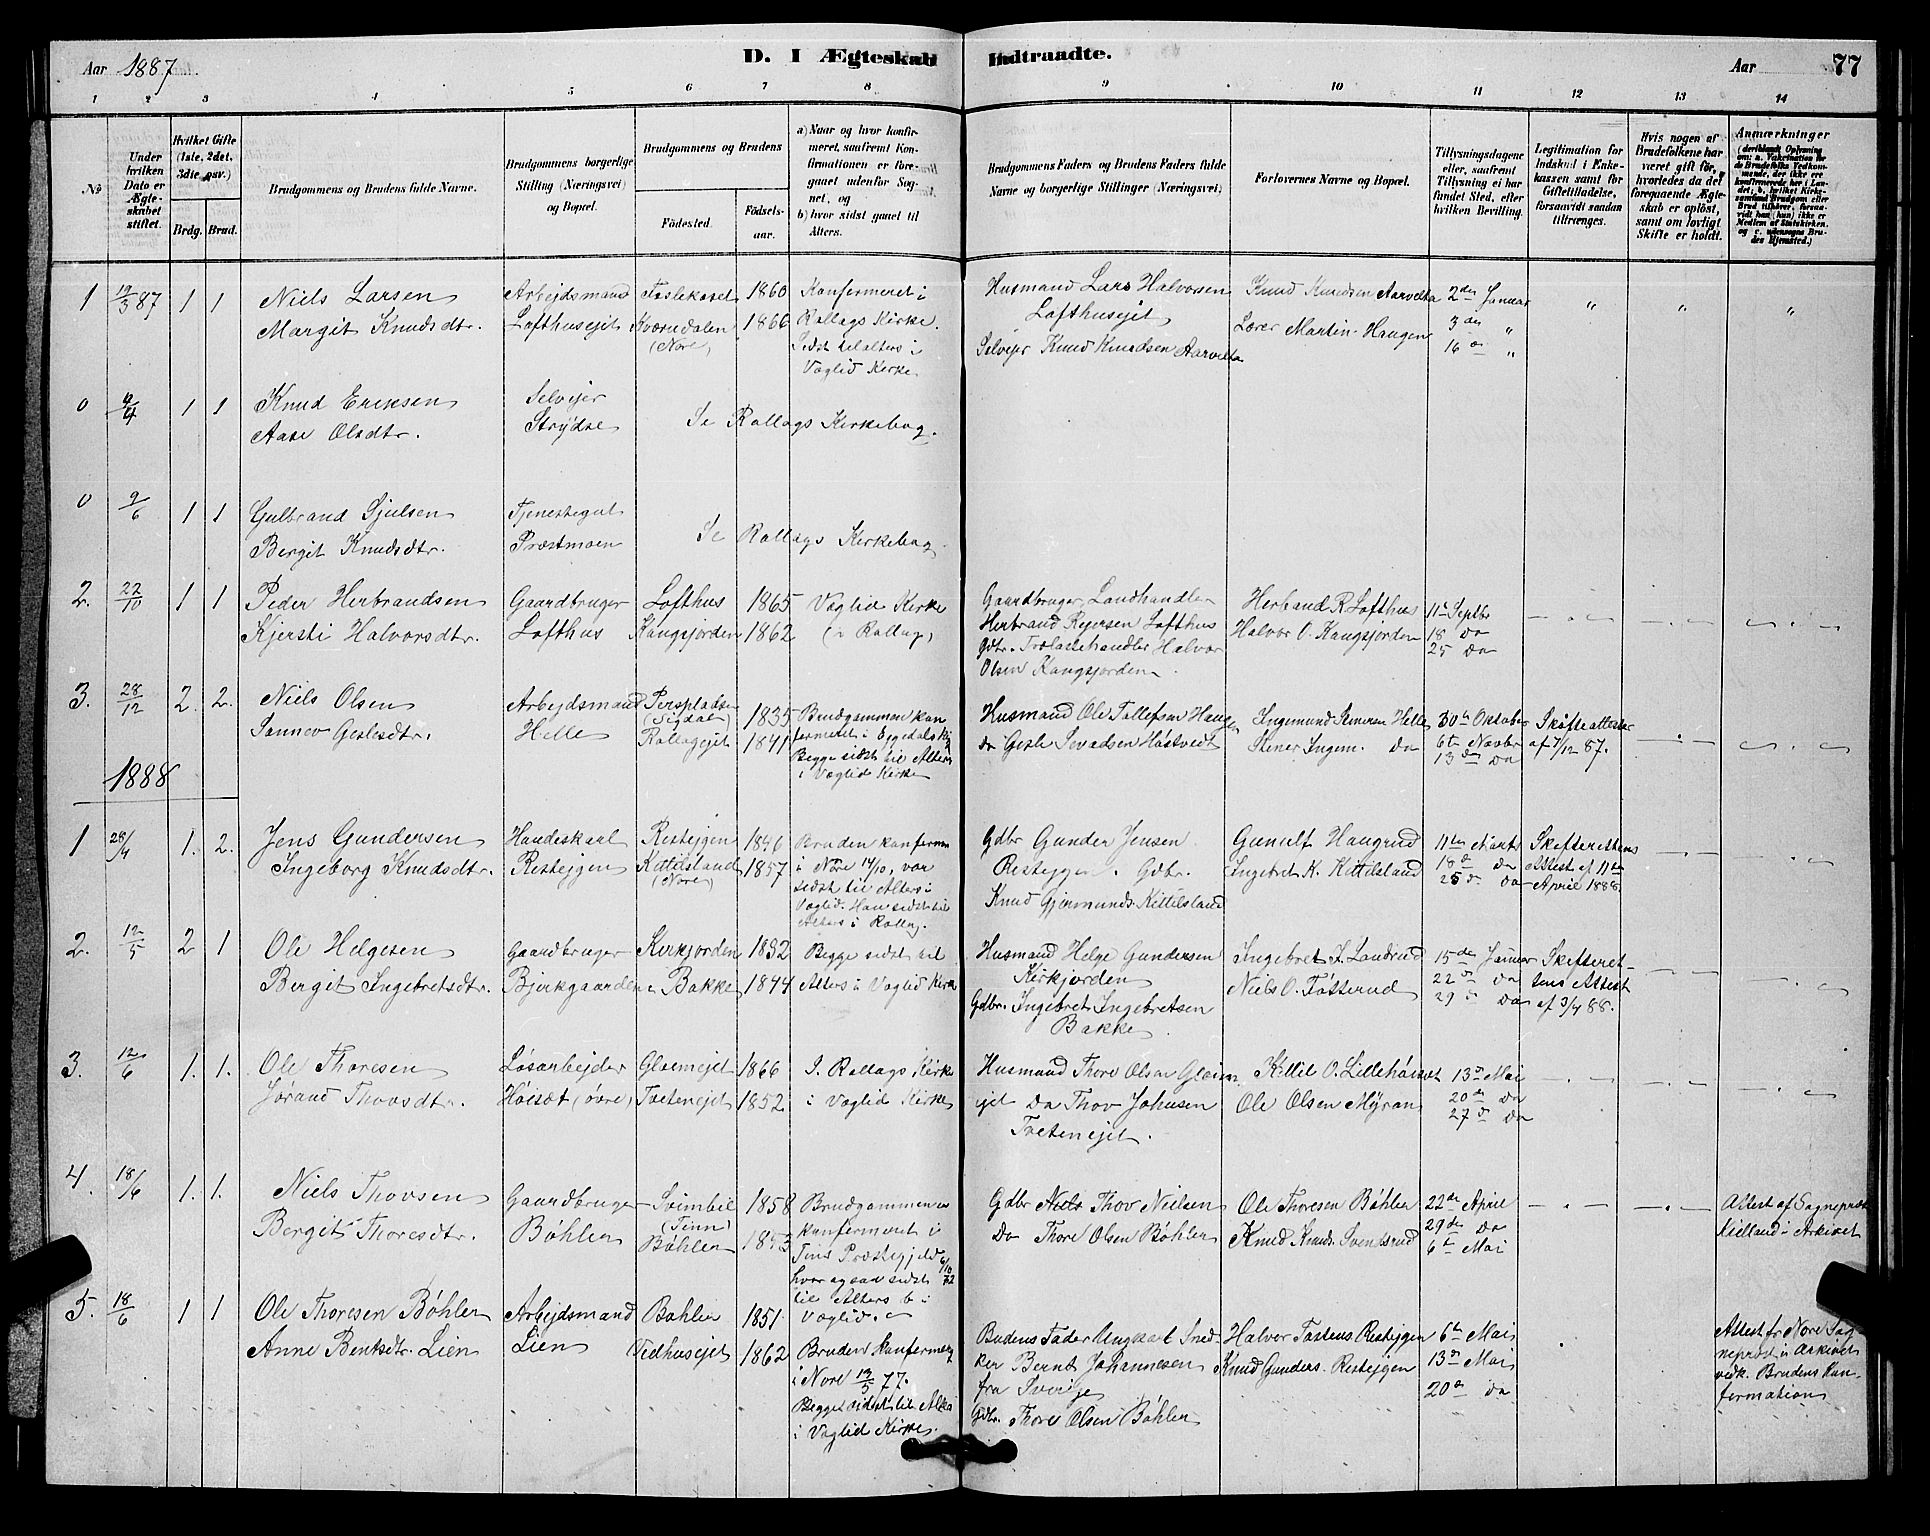 Aar 1887
D. I Ægteskab Indtraadte.
Aar 77
1 2 3 4 5 6 7 8 9 10 11 12 13 14
No
Under hvilken Dato er Ægteskabet stiftet.
Hvilket Gifte (1ste, 2det, 3die osv.)
Brdg. Brud.
Brudgommens og Brudens fulde Navne.
Brudgommens borgerlige Stilling (Næringsvei) og Bopæl.
Brudgommens og Brudens
Födested.
Födsels-aar.
a) Naar og hvor konfirmeret, saafremt Konfirmationen er foregaaet udenfor Sognet, og
b) hvor sidst gaaet til Alters.
Brudgommens Faders og Brudens Faders fulde Navne og borgerlige Stillinger (Næringsvei).
Forlovernes Navne og Bopæl.
Tillysningsdagene eller, saafremt Tillysning ei har fundet Sted, efter hvilken Bevilling.
Legitimation for Indskud i Enkekassen samt for Giftetilladelse, forsaavidt saadan tiltrænges.
Hvis nogen af Brudefolkene har været gift för, hvorledes da det foregaaende Ægteskab er oplöst, samt om lovligt Skifte er holdt.
Anmærkninger
(deriblandt Oplysning om: a. Vakcination for de Brudefolks Vedkommende, der ikke ere konfirmerede her i Landet; b. hvilket Kirkesamfund Brudgom eller Brud tilhörer, forsaavidt han (hun) ikke er Medlem af Statskirken, og c. udensogns Brudes Hjemsted.)
1 19/3 87 1 1
Niels Larsen
Margit Knudsdtr.
Arbejdsmand
Lofthusejet
Kværndalen
(Nore)
1860
1866
Konfermeret i
Rollags Kirke.
Sidst til alters i
Væglid Kirke
Husmand Lars Halvorsen
Lofthusejet
Selvejer Knud Knudsen Aarvelta
Knud Knudsen Aarvelta
Lærer Martin Haugen
2den Januar
3die "
16de "
" " "
0 4/4 1 1
Knud Eriksen
Aase Olsdtr.
Selvejer
Strydse
Se Rollags Kirkebog.
0 9/6 1 1
Gulbrand Gjulsen
Bergit Knudsdtr.
Tjenestegut
Præstmoen
Se Rollags Kirkebog
2. 22/10 1 1
Peder Herbrandsen
Kjersti Halvorsdtr.
Gaardbruger
Lofthus
Lofthus
Kongsjorden
1865
1862
Væglid Kirke
(i Rollag)
Gaardbruger, Landhandler
Herbrand Rejersen Lofthus
Gdbr. Trælasthandler Halvor
Olsen Kongsjorden
Herbrand R. Lofthus
Halvor O. Kongsjorden
11te Septbr
18 Do
25 Do
3. 28/12 2. 2.
Niels Olsen
Sannev Geslesdtr.
Arbejdsmand
Helle
Perspladsen
(Sigdal)
Rollagejet
1835
1841
Brudgommen konfermeret i Eggedals K.
Begge sidst til Alters
i Væglid Kirke
Husmand Ole Tollefsen Haugen
do Gesle Sevadsen Høstvedt
Ingemund Stenersen Helle
Stener Ingem. do
30te Oktober
6te Novbr
13de Do
Skifteattester
af 7/12 87.
1888
1 28/4 1. 2.
Jens Gundersen
Ingeborg Knudsdtr.
Handeskarl
Restejgen
Restejgen
Kittilsland
(Nore)
1846
1857
Bruden konfermeret
i Nore 14/10, var
sidst til Alters i
Væglid. Han sidst til
Alters i Rollag.
Gdbr Gunder Jensen
Restejgen. Gdbr.
Knud Gjermunds. Kittilsland
Gunulf Haugrud
Ingebret K. Kittilsland
11te Marts
18de do
25d. do
Skifterettens
Attest af 11te
April 1888
2. 12/5 2 1
Ole Helgesen
Bergit Ingebretsdtr.
Gaardbruger
Bjerkgaarden
Kirkjorden
Bakke
1832
1844
Begge sidst til
Alters i Væglid Kirke
Husmand Helge Gundersen
Kirkjorden
Gdbr. Ingebret Ingebretsen
Bakke.
Ingebret I. Landrud
Niels O. Fötterud
15de Januar
22 d do
29 d Do
Skifterettens Attest
af 3/4 88.
3. 12/6 1. 1.
Ole Thoresen
Jørand Thovsdtr.
Løsarbejder
Høisæt (øvre)
Gloimejet
Tvetenejet
1866
1852
I Rollags Kirke
i Væglid Kirke
Husmand Thore Olsen Gloim
ejet Do Thov Johnsen
Tvetenejet.
Kittil O. Lillehöisæt
Ole Olsen Myran
13de Mai
20de Do
27d. Do
4. 18/6 1. 1.
Niels Thovsen
Bergit Thoresdtr.
Gaardbruger
Böhlen
Svimbil
(Tinn)
Böhlen
1858
1853
Brudgommen
konfermeret i
Tins Præstegjeld 6/10 72
hvor ogsaa sidst
til Alters b i
Væglid.
Gdbr Thov Nielsen
Do Thore Olsen Böhlen
Ole Thoresen Böhlen
Knud Knuds. Sventsrud
22de April
29de Do
6te Mai
Attest af Sognepræst
Kielland i Arkivet
5. 18/6 1 1
Ole Thoresen Böhlen
Anne Bentsdtr. Lien
Arbejdsmand
Lien
Böhlen
Vedhusejet
1851
1862
Bruden Konfermeret
i Nore 13/5 77.
Begge sidst til Alters
i Væglid Kirke.
Brudens Fader Ungkarl Snedker Bernt Johannesen
fra Sverige
Gdbr. Thore Olsen Böhlen
Halvor Tostens. Restejgen
Knud Gunders. Restejgen
6te Mai
13de Mai
20de do
Attest fr Nore Sogneprest i Arkivet
vedk. Brudens Konfermation